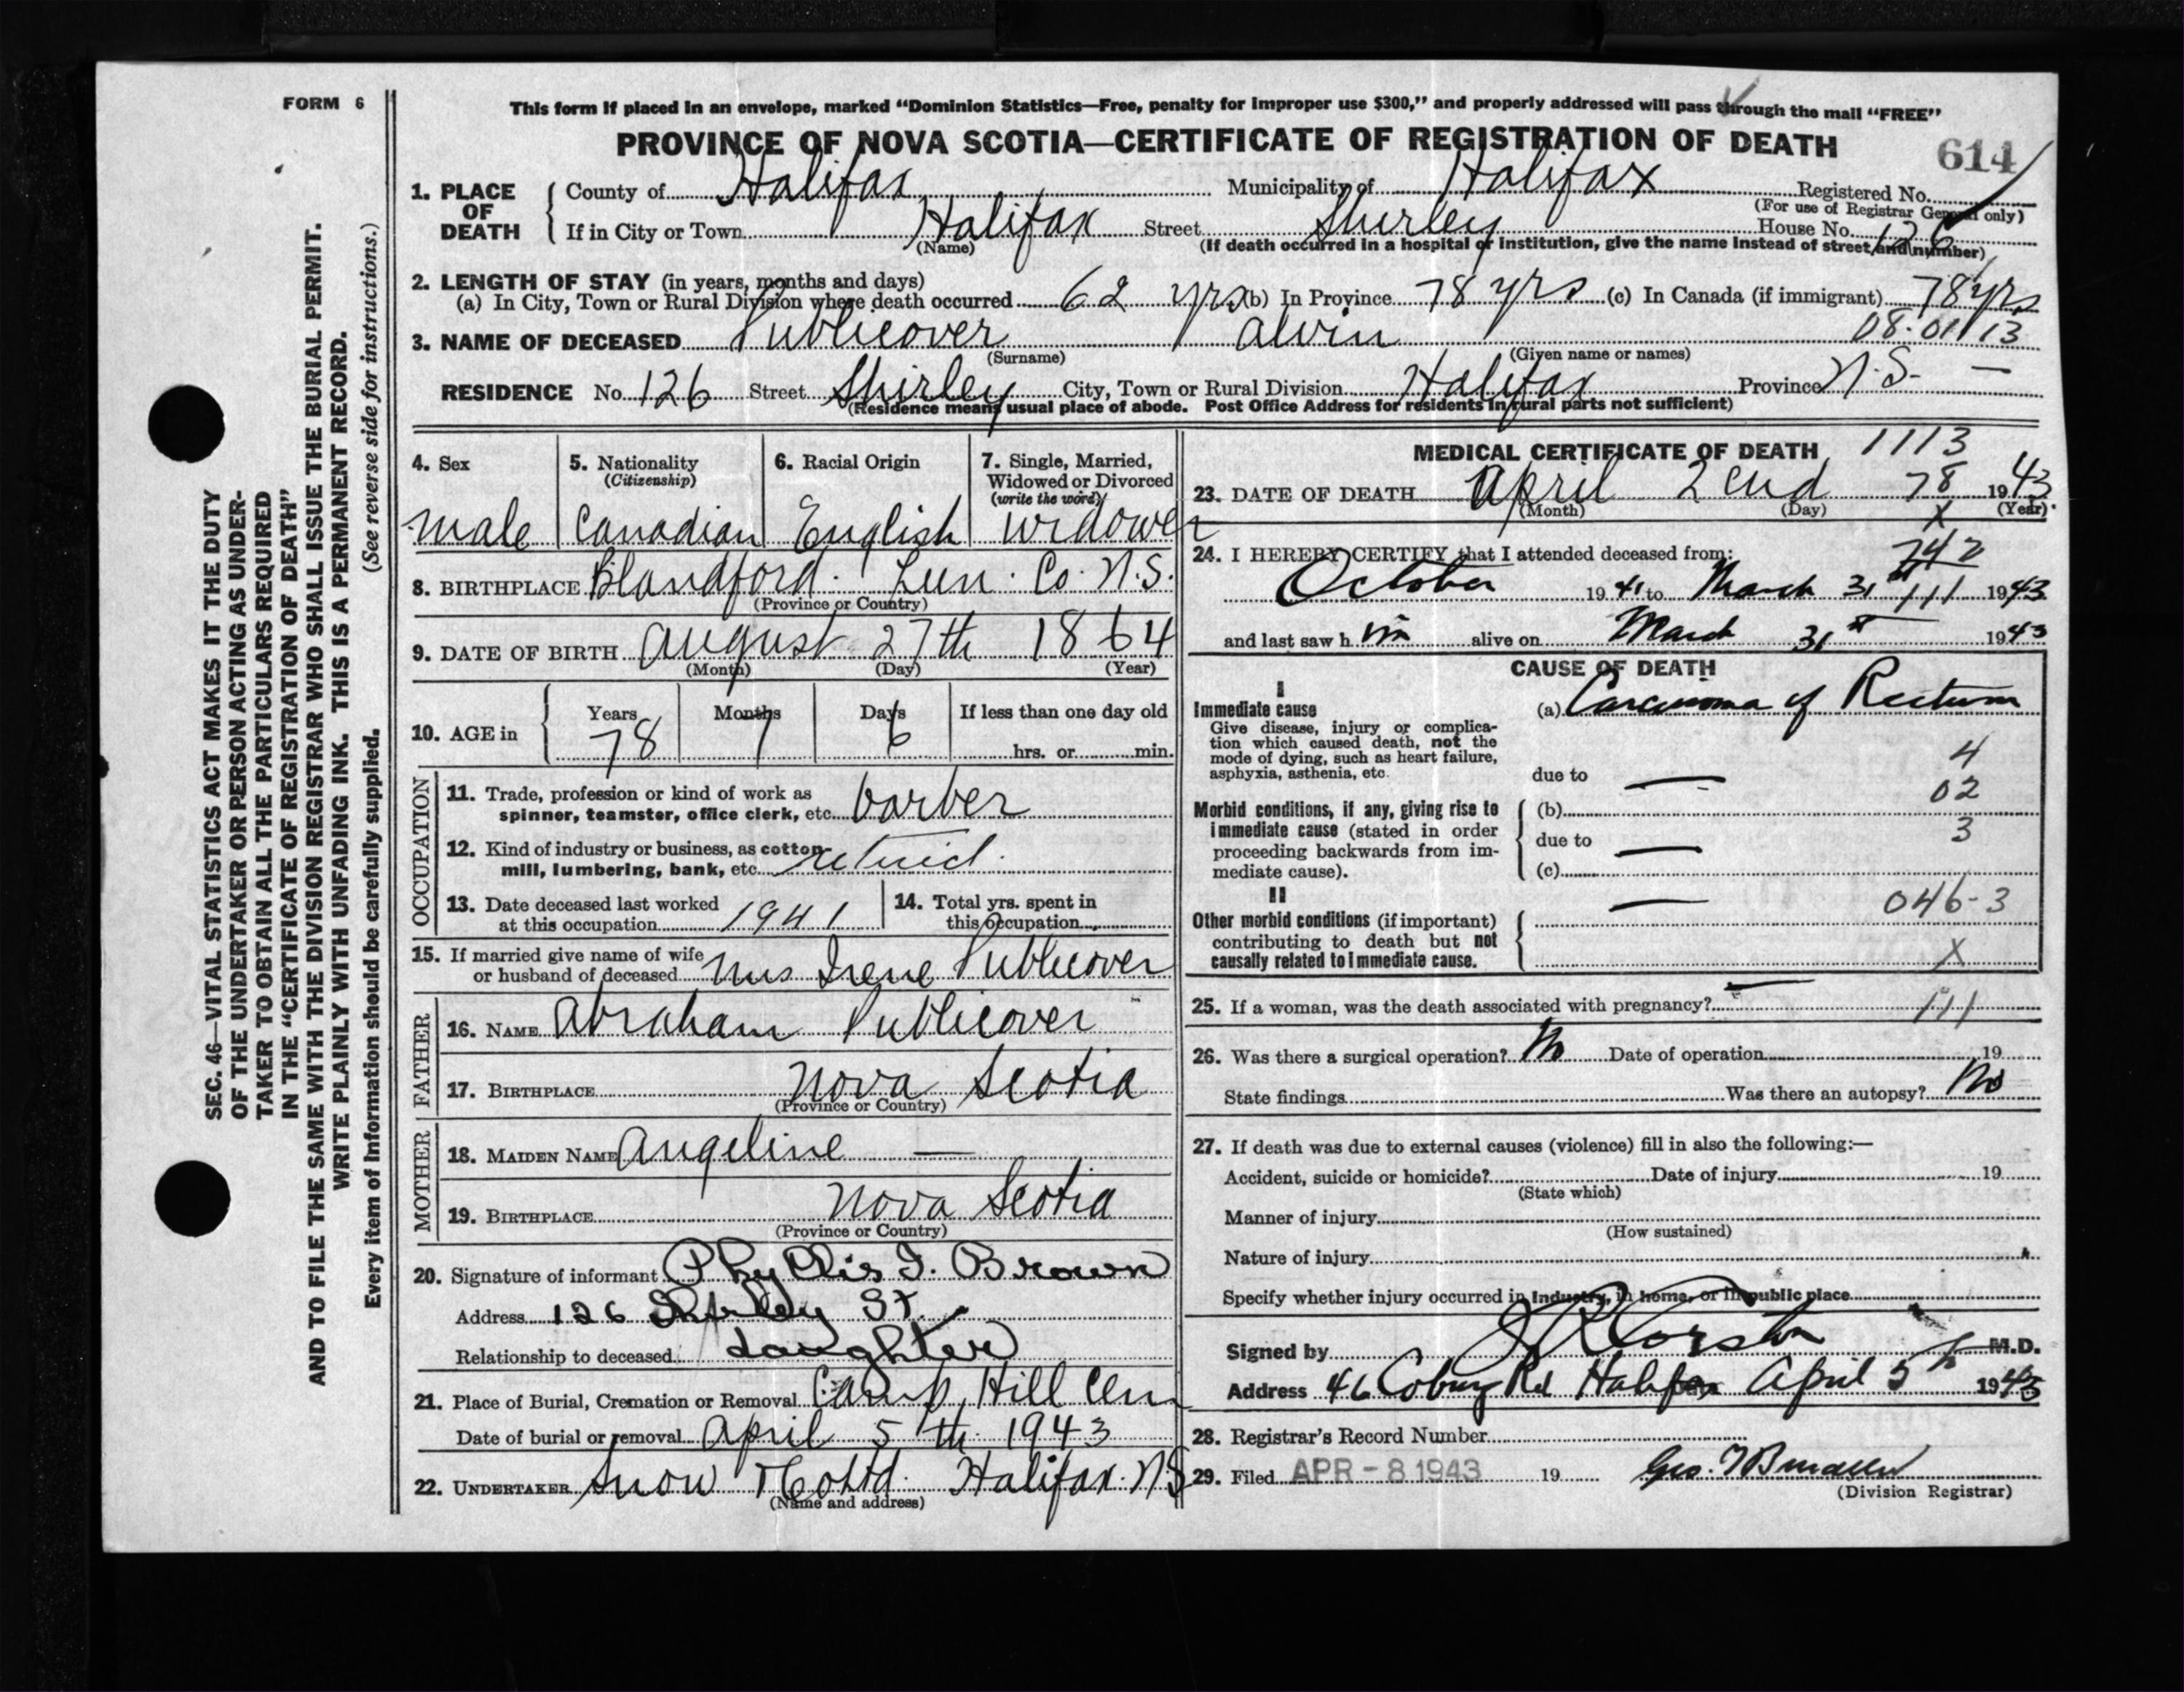 FORM 6
This form if placed in an envelope, marked “Dominion Statistics—Free, penalty for improper use $300,” and properly addressed will pass through the mail “FREE”
PROVINCE OF NOVA SCOTIA—CERTIFICATE OF REGISTRATION OF DEATH
614
1. PLACE OF DEATH
County of Halifax Municipality of Halifax Registered No.
(For use of Registrar General only)
If in City or Town Halifax Street Shirley House No. 126
(Name) (If death occurred in a hospital or institution, give the name instead of street and number)
2. LENGTH OF STAY (in years, months and days)
(a) In City, Town or Rural Division where death occurred 62 yrs (b) In Province 78 yrs (c) In Canada (if immigrant) 78 yrs
3. NAME OF DECEASED Publicover Alvin 08-01113
(Surname) (Given name or names)
RESIDENCE No. 126 Street Shirley City, Town or Rural Division Halifax Province N.S. —
(Residence means usual place of abode. Post Office Address for residents in rural parts not sufficient)
4. Sex
male
5. Nationality
(Citizenship)
Canadian
6. Racial Origin
English
7. Single, Married,
Widowed or Divorced
(write the word)
widower
8. BIRTHPLACE Blandford. Lun. Co. N.S.
(Province or Country)
9. DATE OF BIRTH August 27th 1864
(Month) (Day) (Year)
10. AGE in
Years Months Days If less than one day old
78 7 6 hrs. or min.
OCCUPATION
11. Trade, profession or kind of work as
spinner, teamster, office clerk, etc. barber
12. Kind of industry or business, as cotton
mill, lumbering, bank, etc. retired.
13. Date deceased last worked
at this occupation 1941
14. Total yrs. spent in
this occupation
15. If married give name of wife
or husband of deceased Mrs Irene Publicover
FATHER
16. NAME Abraham Publicover
17. BIRTHPLACE Nova Scotia
(Province or Country)
MOTHER
18. MAIDEN NAME Angeline —
19. BIRTHPLACE Nova Scotia
(Province or Country)
20. Signature of informant Phyllis I. Brown
Address 126 Shirley St.
Relationship to deceased daughter
21. Place of Burial, Cremation or Removal Camp Hill Cem
Date of burial or removal April 5th 1943
22. UNDERTAKER Snow & Co Ltd. Halifax. N.S
(Name and address)
MEDICAL CERTIFICATE OF DEATH 1113
23. DATE OF DEATH April 2cnd 78 1943
(Month) (Day) X (Year)
24. I HEREBY CERTIFY that I attended deceased from: 742
October 1941 to March 31st 111 1943
and last saw him alive on March 31st 1943
CAUSE OF DEATH
I
Immediate cause
Give disease, injury or complica-
tion which caused death, not the
mode of dying, such as heart failure,
asphyxia, asthenia, etc.
(a) Carcinoma of Rectum
4
due to —
02
Morbid conditions, if any, giving rise to
immediate cause (stated in order
proceeding backwards from im-
mediate cause).
(b)
3
due to —
(c)
II
Other morbid conditions (if important)
contributing to death but not
causally related to immediate cause.
— 046-3
X
25. If a woman, was the death associated with pregnancy? — 111
26. Was there a surgical operation? No Date of operation 19
State findings Was there an autopsy? No
27. If death was due to external causes (violence) fill in also the following:—
Accident, suicide or homicide? Date of injury 19
(State which)
Manner of injury
(How sustained)
Nature of injury
Specify whether injury occurred in industry, in home, or in public place
Signed by M.D.
Address 46 Coburg Rd Halifax April 5th 1943
28. Registrar's Record Number
29. Filed APR - 8 1943 19 Geo.
(Division Registrar)
SEC. 46—VITAL STATISTICS ACT MAKES IT THE DUTY
OF THE UNDERTAKER OR PERSON ACTING AS UNDER-
TAKER TO OBTAIN ALL THE PARTICULARS REQUIRED
IN THE “CERTIFICATE OF REGISTRATION OF DEATH”
AND TO FILE THE SAME WITH THE DIVISION REGISTRAR WHO SHALL ISSUE THE BURIAL PERMIT.
WRITE PLAINLY WITH UNFADING INK. THIS IS A PERMANENT RECORD.
Every item of information should be carefully supplied. (See reverse side for instructions.)